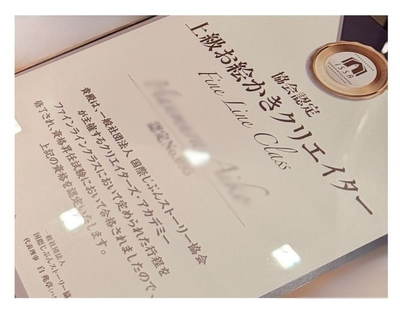 協会認定
上級お絵かきクリエイター
Fine Line Class
貴殿は、一般社団法人 国際じぶんストーリー協会
が主催するクリエイターズ・アカデミー
ファインラインクラスにおいて定められた行程を
修了され、資格昇任試験において合格されましたので、
上記の資格を認定いたします。
一般社団法人
国際じぶんストーリー協
代表理事